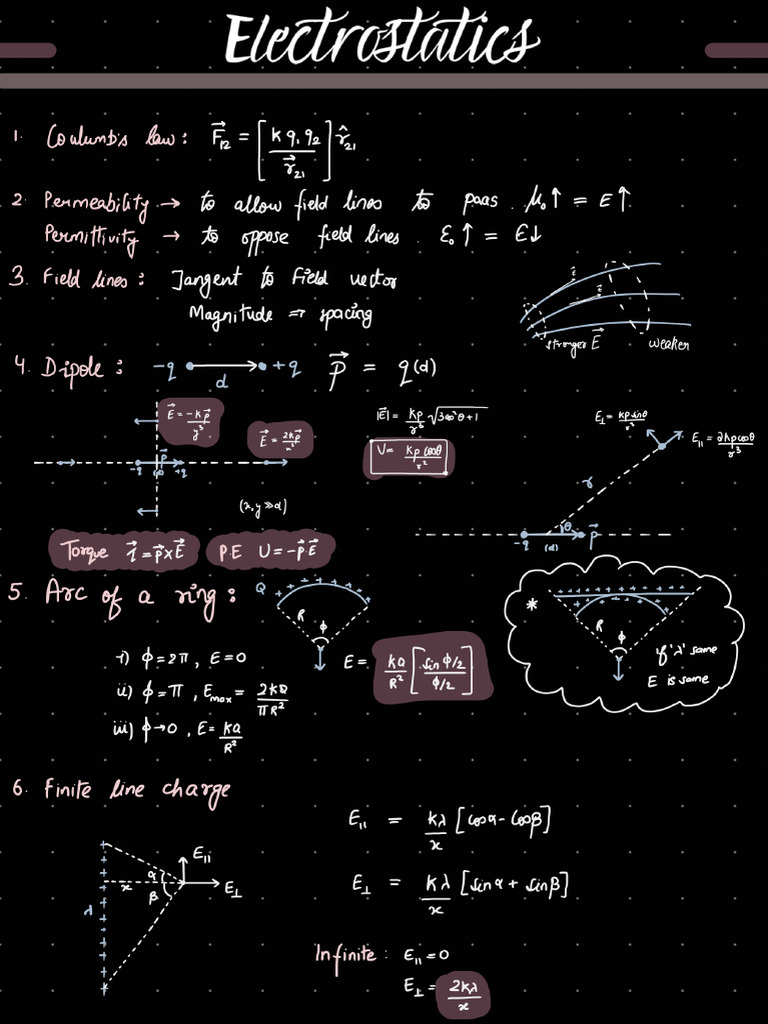 Electrostatics
1. Coulumb's law: F⃗₁₂ = [k q₁ q₂ / r⃗₂₁] r̂₂₁
2. Permeability → to allow field lines to pass. μ₀↑ = E↑
Permittivity → to oppose field lines. ε₀↑ = E↓
3. Field lines: Tangent to Field vector
Magnitude ⇒ spacing
stronger E⃗ weaker
4. Dipole: -q d +q p⃗ = q(d)
E⃗ = -kp⃗/y³
E⃗ = 2kp⃗/x³
-q (d) +q p⃗
(x, y ≫ d)
|E| = kp/r³ √3cos²θ+1
V = kp cosθ/r²
E⊥ = kp sinθ/r³
E∥ = 2kp cosθ/r³
r θ
-q (d) p⃗
Torque τ⃗ = p⃗ x E⃗
P.E U = -p⃗ E⃗
5. Arc of a ring:
Q + + + + + + +
R φ
i) φ = 2π, E = 0
ii) φ = π, Emax = 2kQ/πR²
iii) φ → 0, E = kQ/R²
E = kQ/R² [sin φ/2 / φ/2]
*
R φ
if 'λ' same
E is same
6. Finite line charge
λ x α β E∥ E⊥
E∥ = kλ/x [cosα - cosβ]
E⊥ = kλ/x [sinα + sinβ]
Infinite: E∥ = 0
E⊥ = 2kλ/x